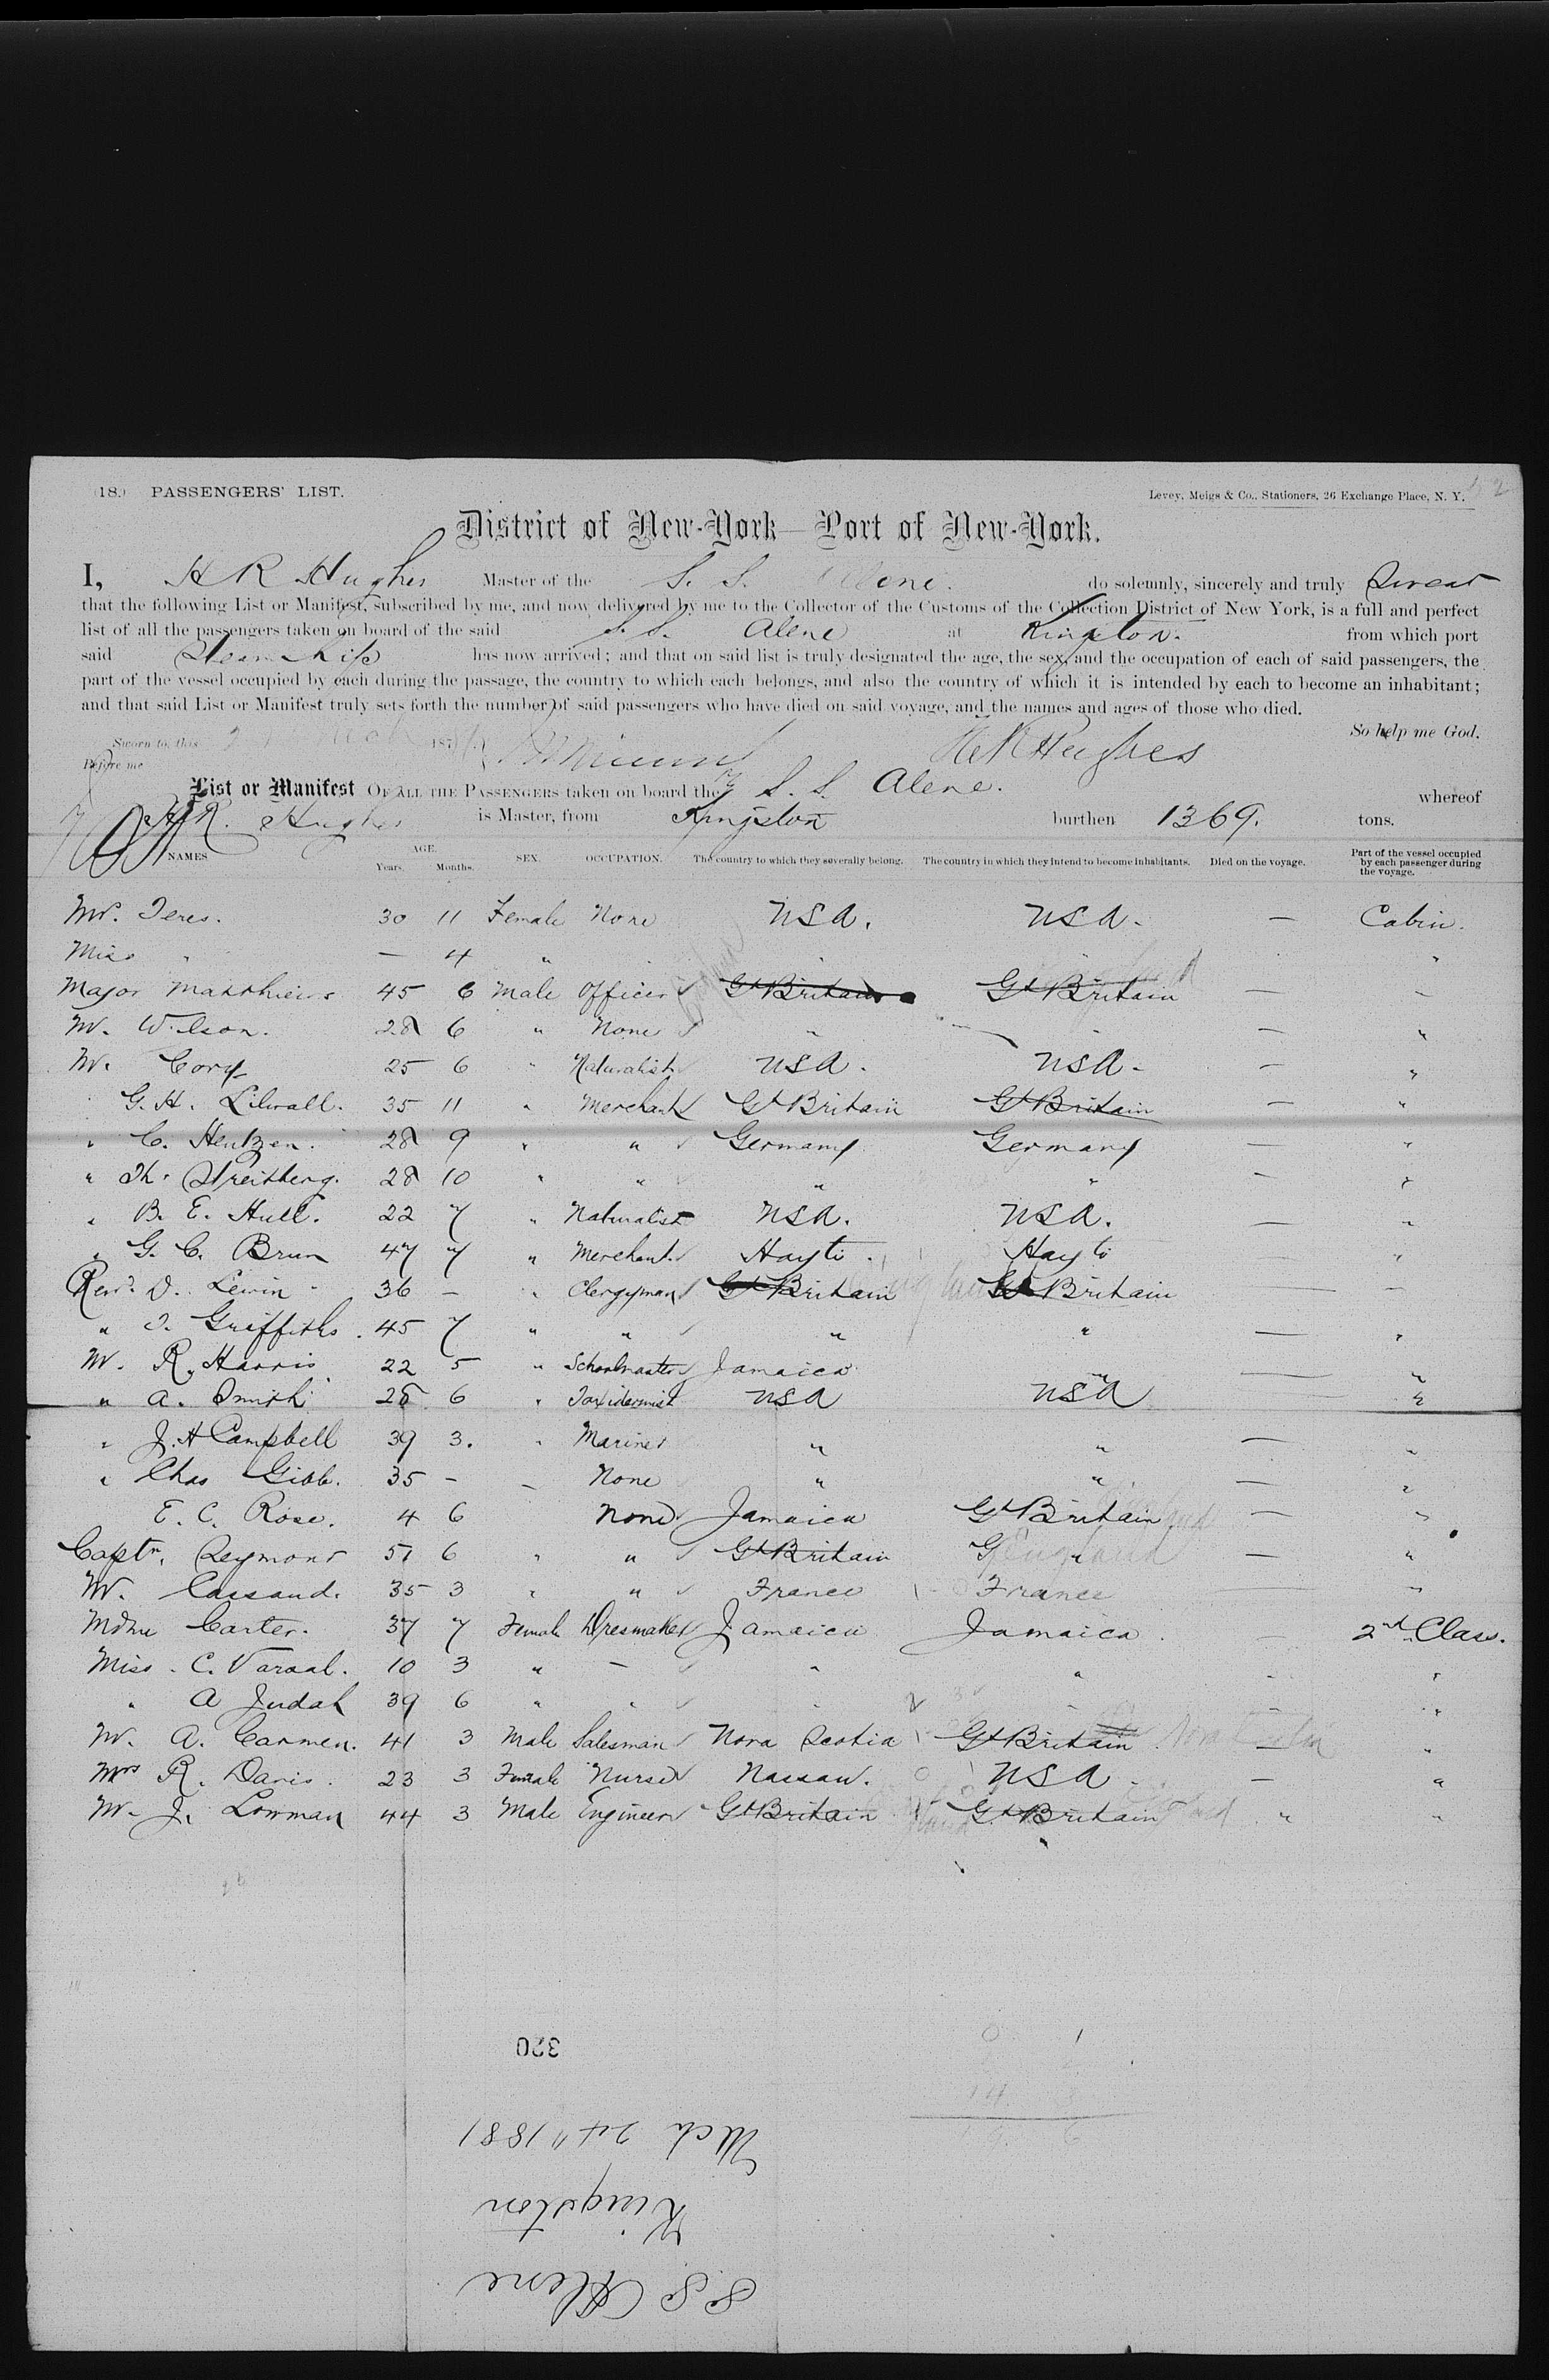 (18.) PASSENGERS' LIST. Levey, Meigs & Co., Stationers, 26 Exchange Place, N. Y.
District of New-York—Port of New-York.
I, H R Hughes Master of the S. S. Alene. do solemnly, sincerely and truly Swear
that the following List or Manifest, subscribed by me, and now delivered by me to the Collector of the Customs of the Collection District of New York, is a full and perfect
list of all the passengers taken on board of the said S. S. Alene at Kingston. from which port
said Steamship has now arrived; and that on said list is truly designated the age, the sex, and the occupation of each of said passengers, the
part of the vessel occupied by each during the passage, the country to which each belongs, and also the country of which it is intended by each to become an inhabitant;
and that said List or Manifest truly sets forth the number of said passengers who have died on said voyage, and the names and ages of those who died.
So help me God.
Sworn to, this March 187 H R Hughes
Before me
List or Manifest OF ALL THE PASSENGERS taken on board the S. S. Alene. whereof
H. R. Hughes is Master, from Kingston burthen 1369. tons.
NAMES AGE. Years. Months. SEX. OCCUPATION. The country to which they severally belong. The country in which they intend to become inhabitants. Died on the voyage. Part of the vessel occupied by each passenger during the voyage.
Mr. Teres. 30 11 Female None USA. USA - — Cabin.
Miss " — 4 " " " "
Major Matthews 45 6 Male Officer Gt Britain Gt Britain — "
Mr. Wilson. 28 6 " None " " — "
Mr. Cory 25 6 " Naturalist USA. USA - — "
G. H. Lilwall. 35 11 " Merchant Gt Britain Gt Britain — "
" C. Hentzen. 28 9 " " Germany Germany — "
" Th. Streitberg. 28 10 " " " " — "
" B. E. Hull. 22 7 " Naturalist USA. USA. — "
" G. C. Brun 47 7 " Merchant Hayti. Hayti "
Revd. D. Lewin 36 — " Clergyman Gt Britain Gt Britain — "
" T. Griffiths. 45 7 " " " " — "
Mr. R. Harris 22 5 " Schoolmaster Jamaica " — "
" A. Smith 28 6 " Taxidermist USA USA "
" J. H Campbell 39 3. " Mariner " " — "
" Chas Gibb. 35 - " None " " — "
E. C. Rose. 4 6 None Jamaica Gt Britain — "
Captn. Seymour 51 6 " " Gt Britain England — "
Mr. Cassaud. 35 3 " " France France — "
Mdme Carter. 37 7 Female Dresmaker Jamaica Jamaica. — 2nd Class.
Miss. C. Varaal. 10 3 " — " " - "
" A Judah 39 6 " " " " — "
Mr. A. Carmen. 41 3 Male Salesman Nova Scotia Gt Britain Nova Scotia — "
Mrs R. Davis. 23 3 Female Nurse Nassau. USA - — "
Mr. J. Lowman 44 3 Male Engineer Gt Britain Gt Britain " "
320
Mch 24" 1881
Kingston
S S Alene